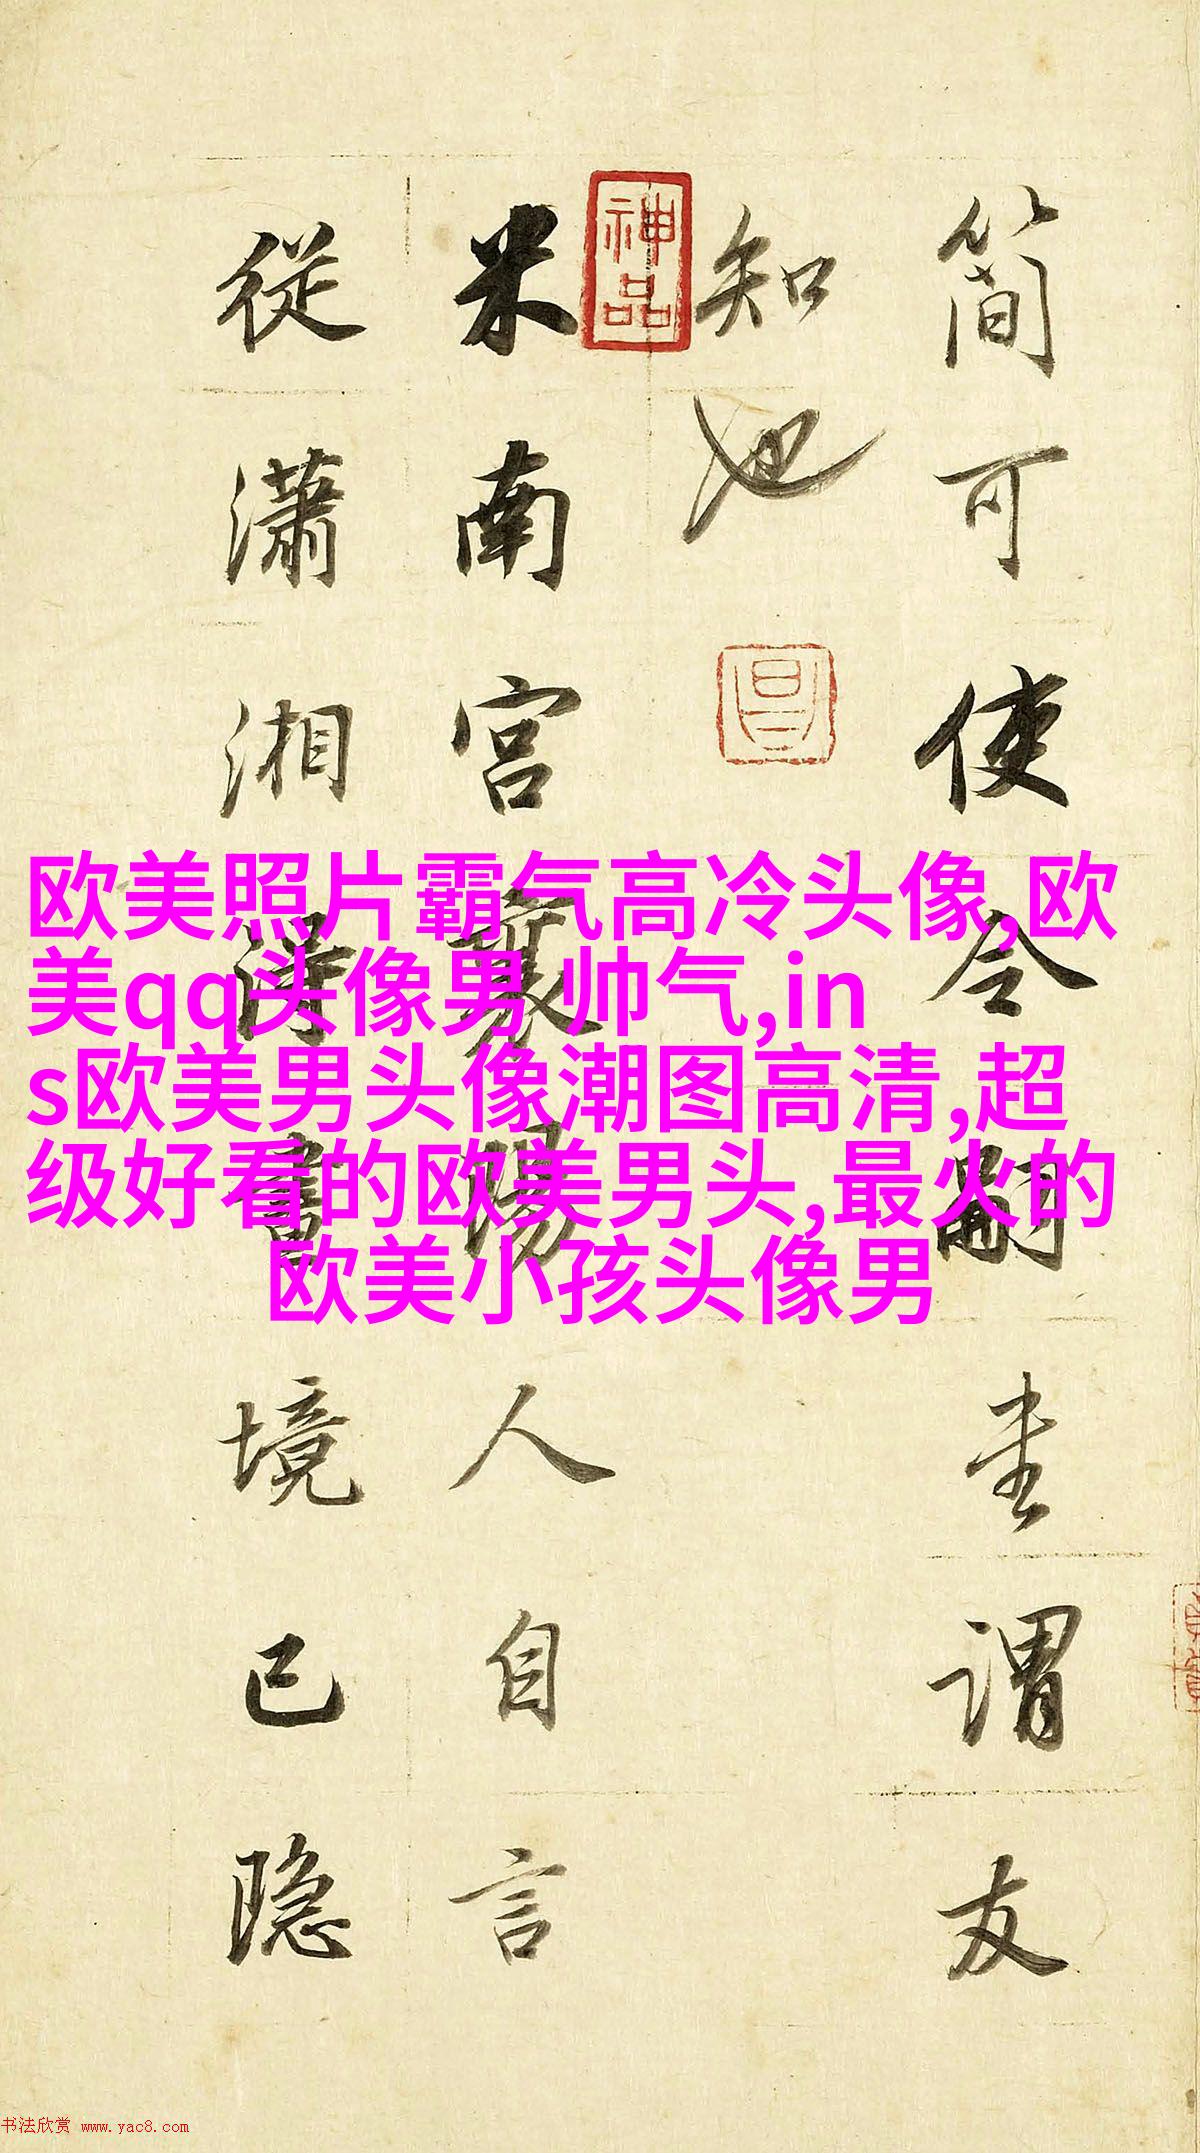 简可使令嗣謂友
知也
米南宫襄陽人自言
從瀟湘得畫境已隐
神品
昌
欧美照片霸气高冷头像,欧
美qq头像男 帅气,in
s欧美男头像潮图高清,超
级好看的欧美男头,最火的
欧美小孩头像男
书法欣赏 www.yac8.com